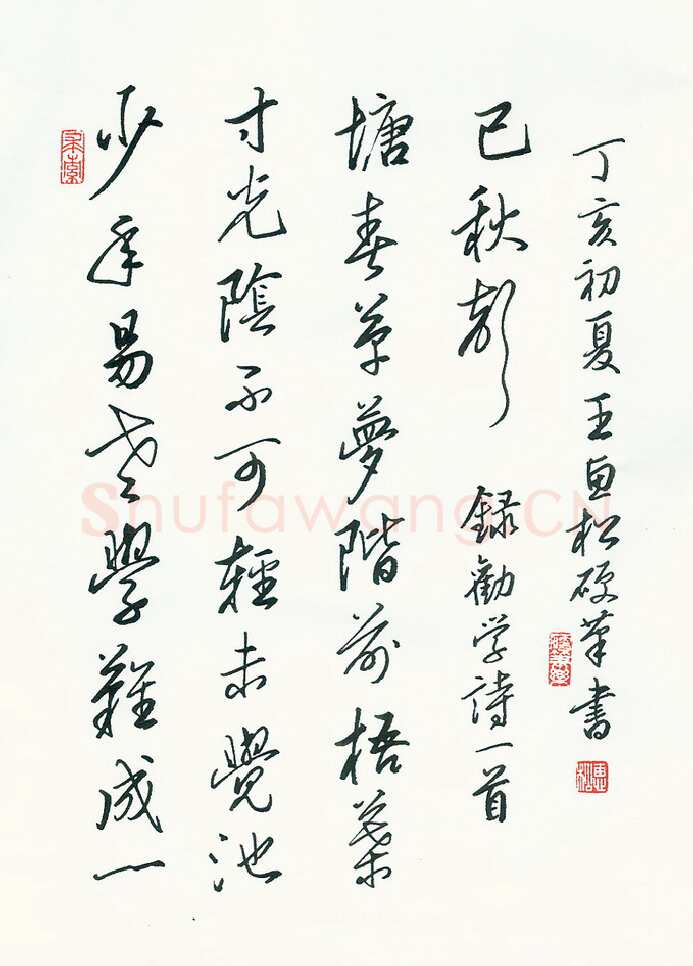 少年易老學難成一
寸光陰不可輕未覺池
塘春草夢階前梧葉
已秋聲 録勸学詩一首
丁亥初夏王惠松硬筆書
Shufawang.CN